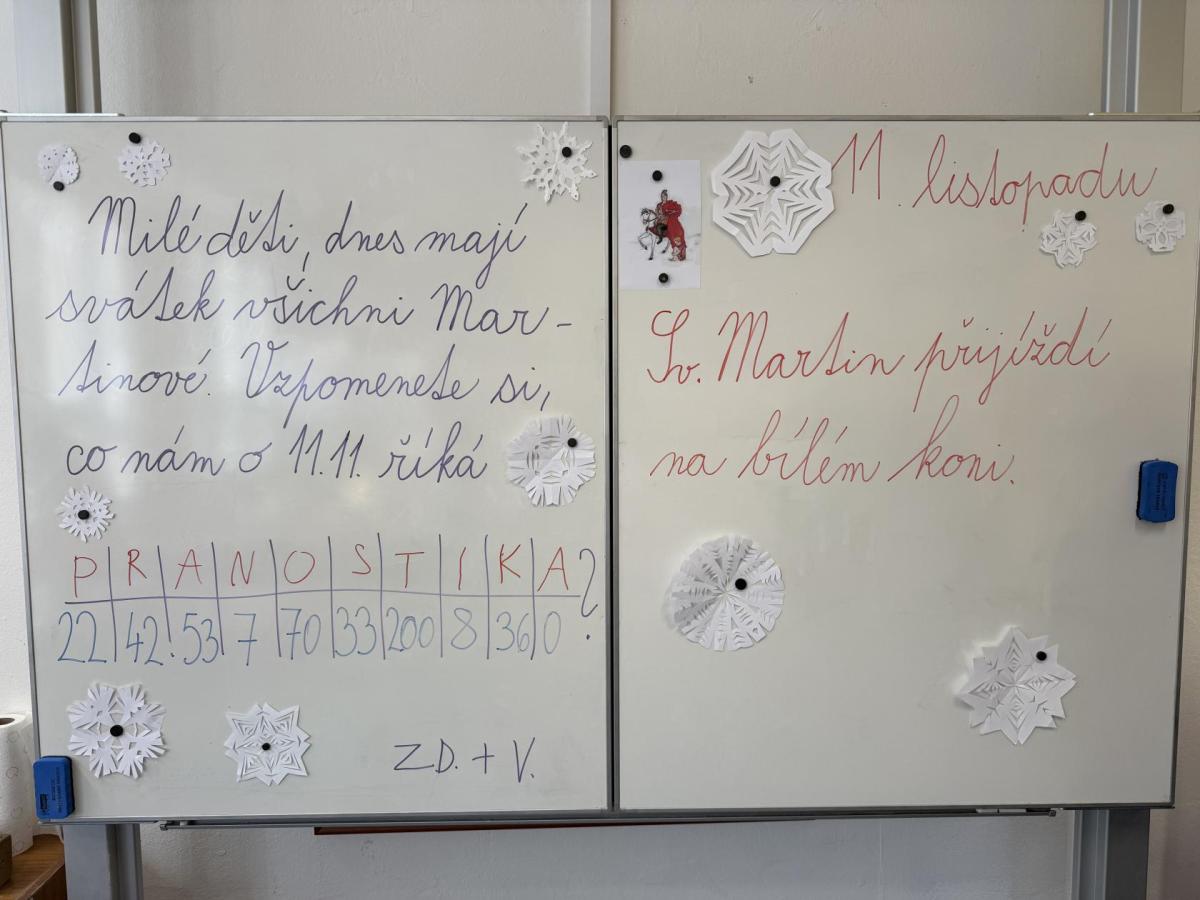 Milé děti, dnes mají
svátek všichni Mar-
tinové. Vzpomenete si,
co nám o 11.11. říká
P R A N O S T I K A ?
22 42 53 7 70 33 200 8 36 0
Z D. + V.
11. listopadu
Sv. Martin přijíždí
na bílém koni.